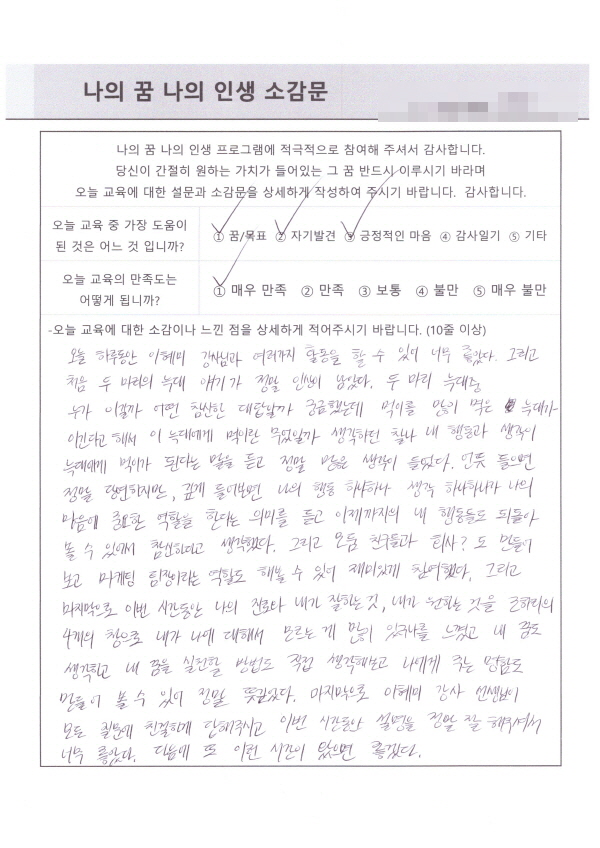 나의 꿈 나의 인생 소감문
나의 꿈 나의 인생 프로그램에 적극적으로 참여해 주셔서 감사합니다.
당신이 간절히 원하는 가치가 들어있는 그 꿈 반드시 이루시기 바라며
오늘 교육에 대한 설문과 소감문을 상세하게 작성하여 주시기 바랍니다. 감사합니다.
오늘 교육 중 가장 도움이
된 것은 어느 것 입니까?
① 꿈/목표 ② 자기발견 ③ 긍정적인 마음 ④ 감사일기 ⑤ 기타
오늘 교육의 만족도는
어떻게 됩니까?
① 매우 만족 ② 만족 ③ 보통 ④ 불만 ⑤ 매우 불만
-오늘 교육에 대한 소감이나 느낀 점을 상세하게 적어주시기 바랍니다. (10줄 이상)
오늘 하루동안 이혜미 강사님과 여러가지 활동을 할 수 있어 너무 좋았다. 그리고
처음 두 마리의 늑대 얘기가 정말 인상이 남았다. 두 마리 늑대중
누가 이길까 어떤 참신한 대답일까 궁금했는데 먹이를 많이 먹은 늑대가
이긴다고 해서 이 늑대에게 먹이란 무엇일까 생각하던 찰나 내 행동과 생각이
늑대에게 먹이가 된다는 말을 듣고 정말 많은 생각이 들었다. 언뜻 들으면
정말 당연하지만, 깊게 들어보면 나의 행동 하나하나 생각 하나하나가 나의
마음에 중요한 역할을 한다는 의미를 듣고 이제까지의 내 행동들도 되돌아
볼 수 있어서 참신하다고 생각했다. 그리고 모둠 친구들과 회사? 도 만들어
보고 마케팅 팀장이라는 역할도 해볼 수 있어 재미있게 참여했다. 그리고
마지막으로 이번 시간동안 나의 진로나 내가 잘하는 것, 내가 원하는 것을 조하리의
4개의 창으로 내가 나에 대해서 모르는게 많이 있구나를 느꼈고 내 꿈도
생각하고 내 꿈을 실현할 방법도 직접 생각해보고 나에게 주는 명함도
만들어 볼 수 있어 정말 뜻깊었다. 마지막으로 이혜미 강사 선생님이
모든 질문에 친절하게 답해주시고 이번 시간동안 설명을 정말 잘 해주셔서
너무 좋았다. 다음에 또 이런 시간이 있으면 좋겠다.